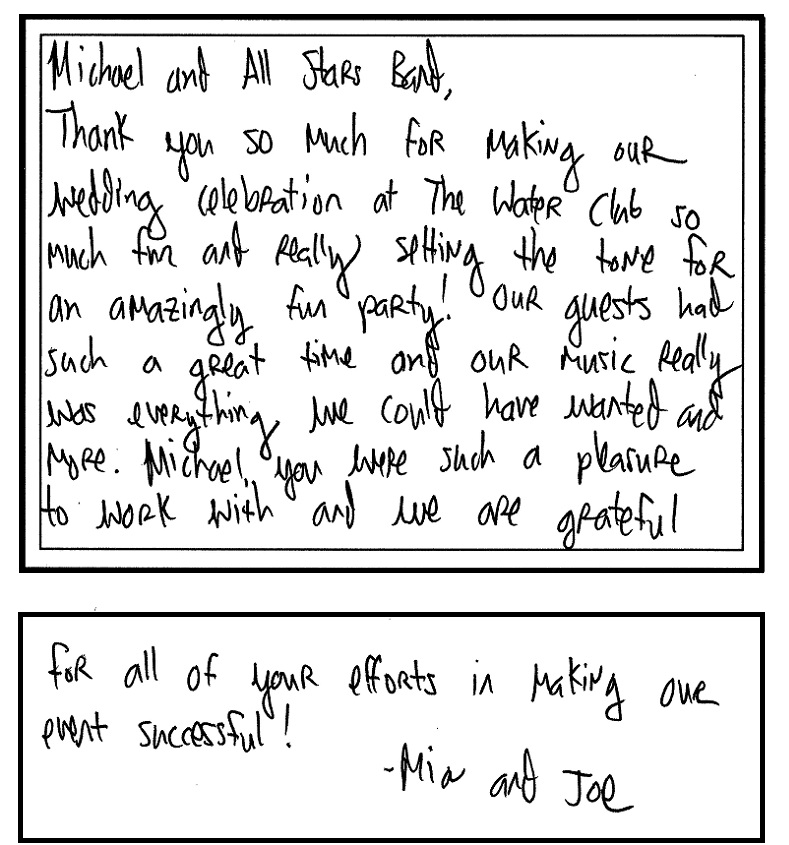 Michael and All Stars Band,
Thank you so much for making our
wedding celebration at The Water Club so
much fun and really setting the tone for
an amazingly fun party! Our guests had
such a great time and our music really
was everything we could have wanted and
more. Michael, you were such a pleasure
to work with and we are grateful
for all of your efforts in making our
event successful!
-Mia and Joe